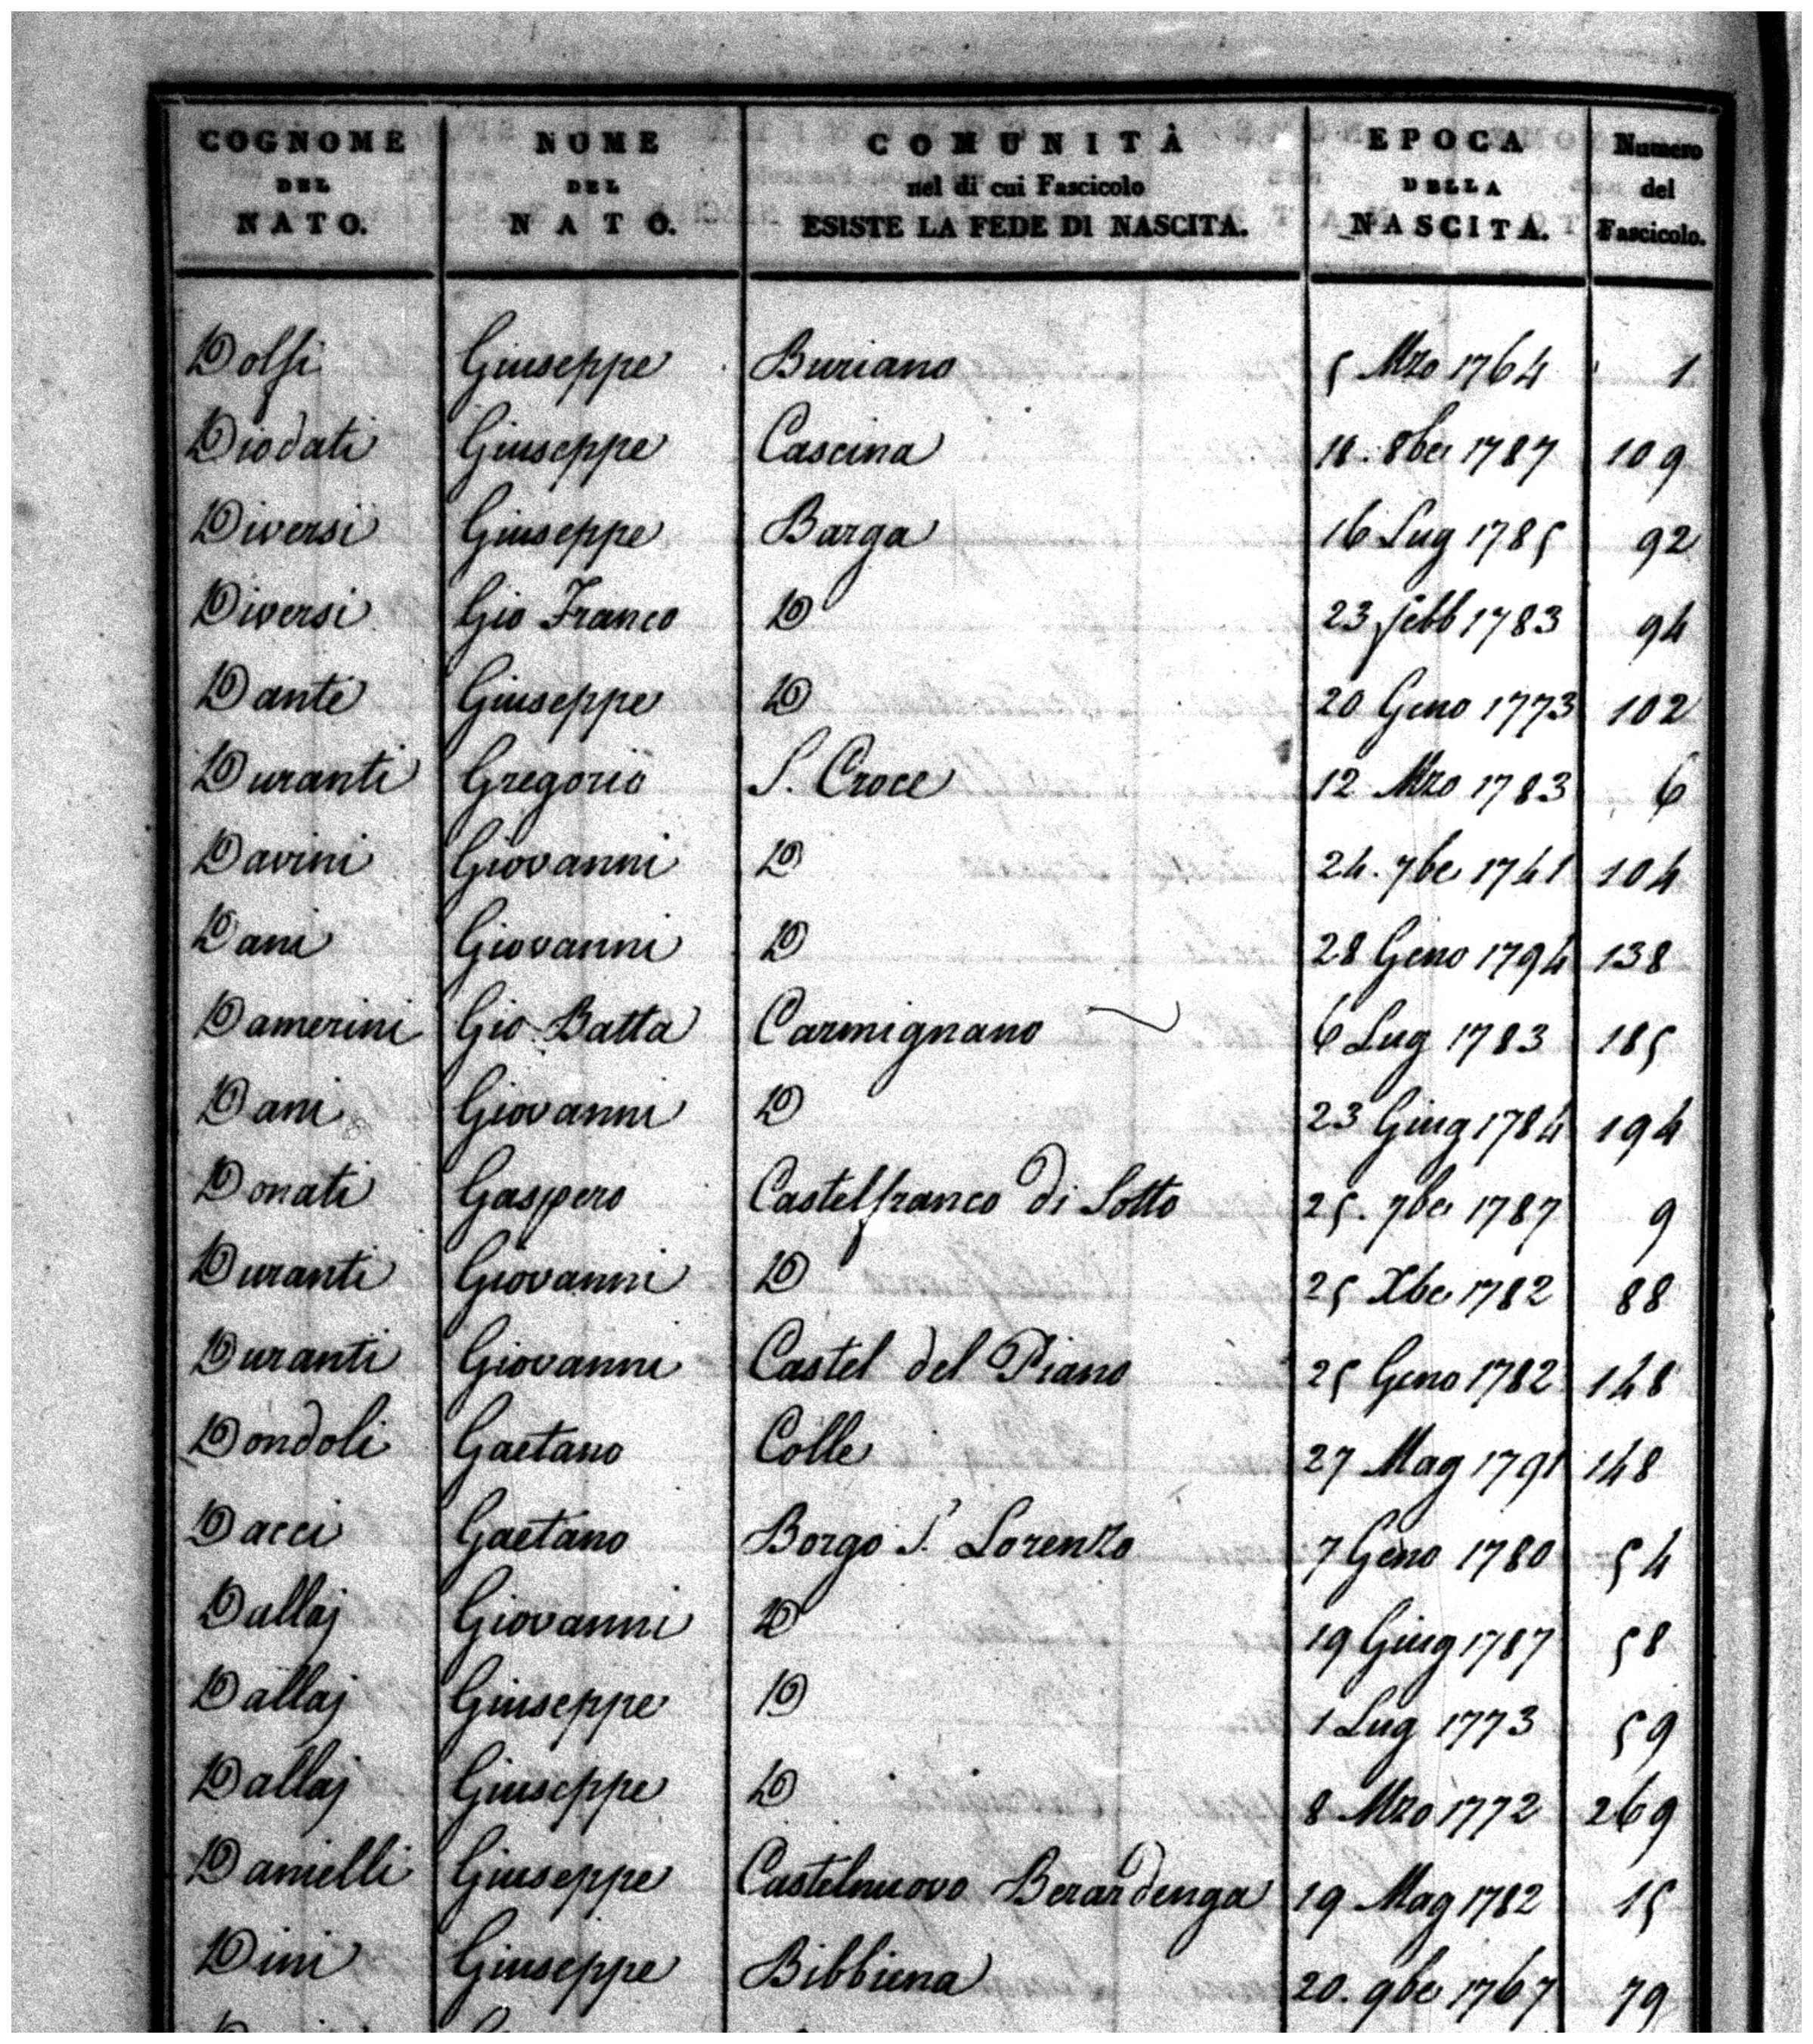 COGNOME DEL NATO. NOME DEL NATO. COMUNITÀ nel di cui Fascicolo ESISTE LA FEDE DI NASCITA. EPOCA DELLA NASCITA. Numero del Fascicolo.
Dolfi Giuseppe Buriano 5 Mzo 1764 1
Diodati Giuseppe Cascina 18. 8be 1787 109
Diversi Giuseppe Barga 16 Lug 1785 92
Diversi Gio Franco D 23 febb 1783 94
Dante Giuseppe D 20 Geno 1773 102
Duranti Gregorio S. Croce 12 Mzo 1783 6
Davini Giovanni D 24. 7be 1741 104
Dani Giovanni D 28 Geno 1794 138
Damerini Gio Batta Carmignano 6 Lug 1783 185
Dani Giovanni D 23 Giug 1784 194
Donati Gaspero Castelfranco di Sotto 25. 7be 1787 9
Duranti Giovanni D 25 Xbe 1782 88
Duranti Giovanni Castel del Piano 25 Geno 1782 148
Dondoli Gaetano Colle 27 Mag 1791 148
Dacci Gaetano Borgo S. Lorenzo 7 Geno 1780 54
Dallaj Giovanni D 19 Giug 1787 58
Dallaj Giuseppe D 1 Lug 1773 59
Dallaj Giuseppe D 8 Mzo 1772 269
Danielli Giuseppe Castelnuovo Berardenga 19 Mag 1782 15
Dini Giuseppe Bibbiena 20. 9be 1767 79